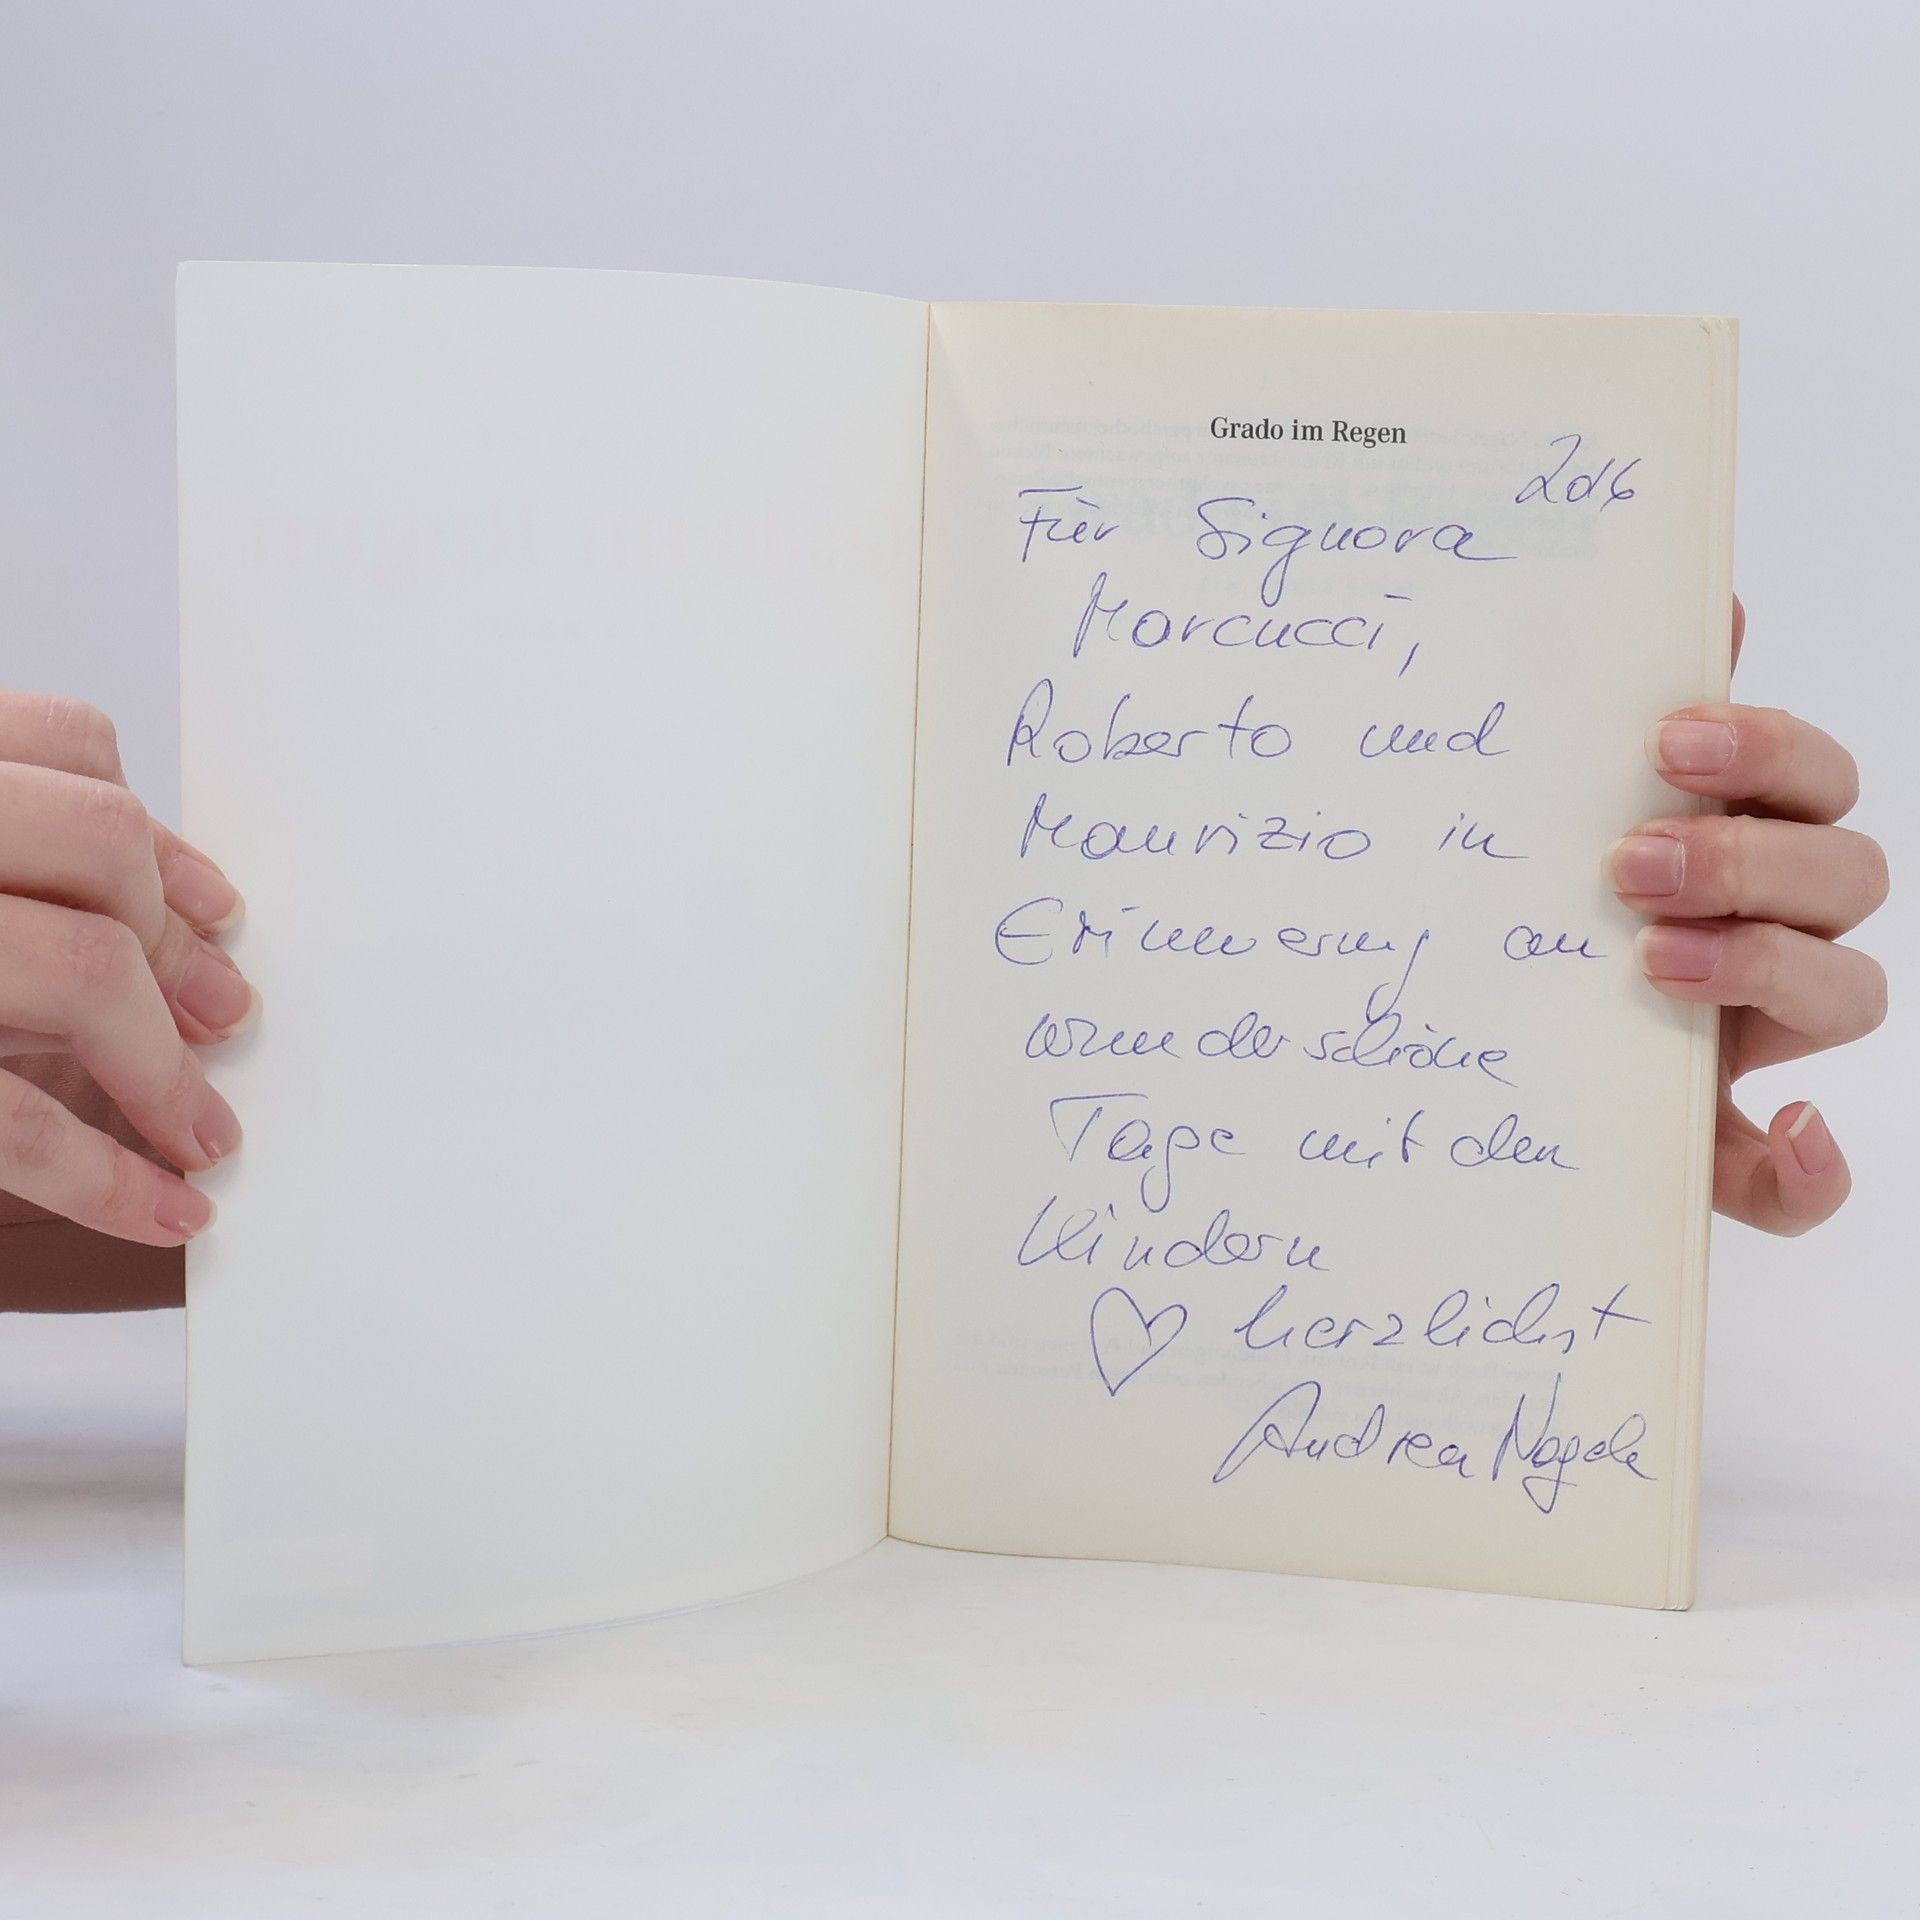 Grado im Regen
2016
Für Signora
Marcucci,
Roberto und
Maurizio in
Erinnerung an
wunderschöne
Tage mit den
Kindern
♡ herzlichst
Andrea Nagele